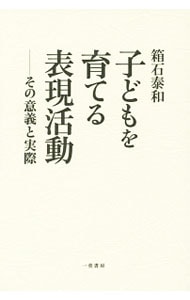 箱石泰和
子どもを
育てる
表現活動
――その意義と実際
一莖書房